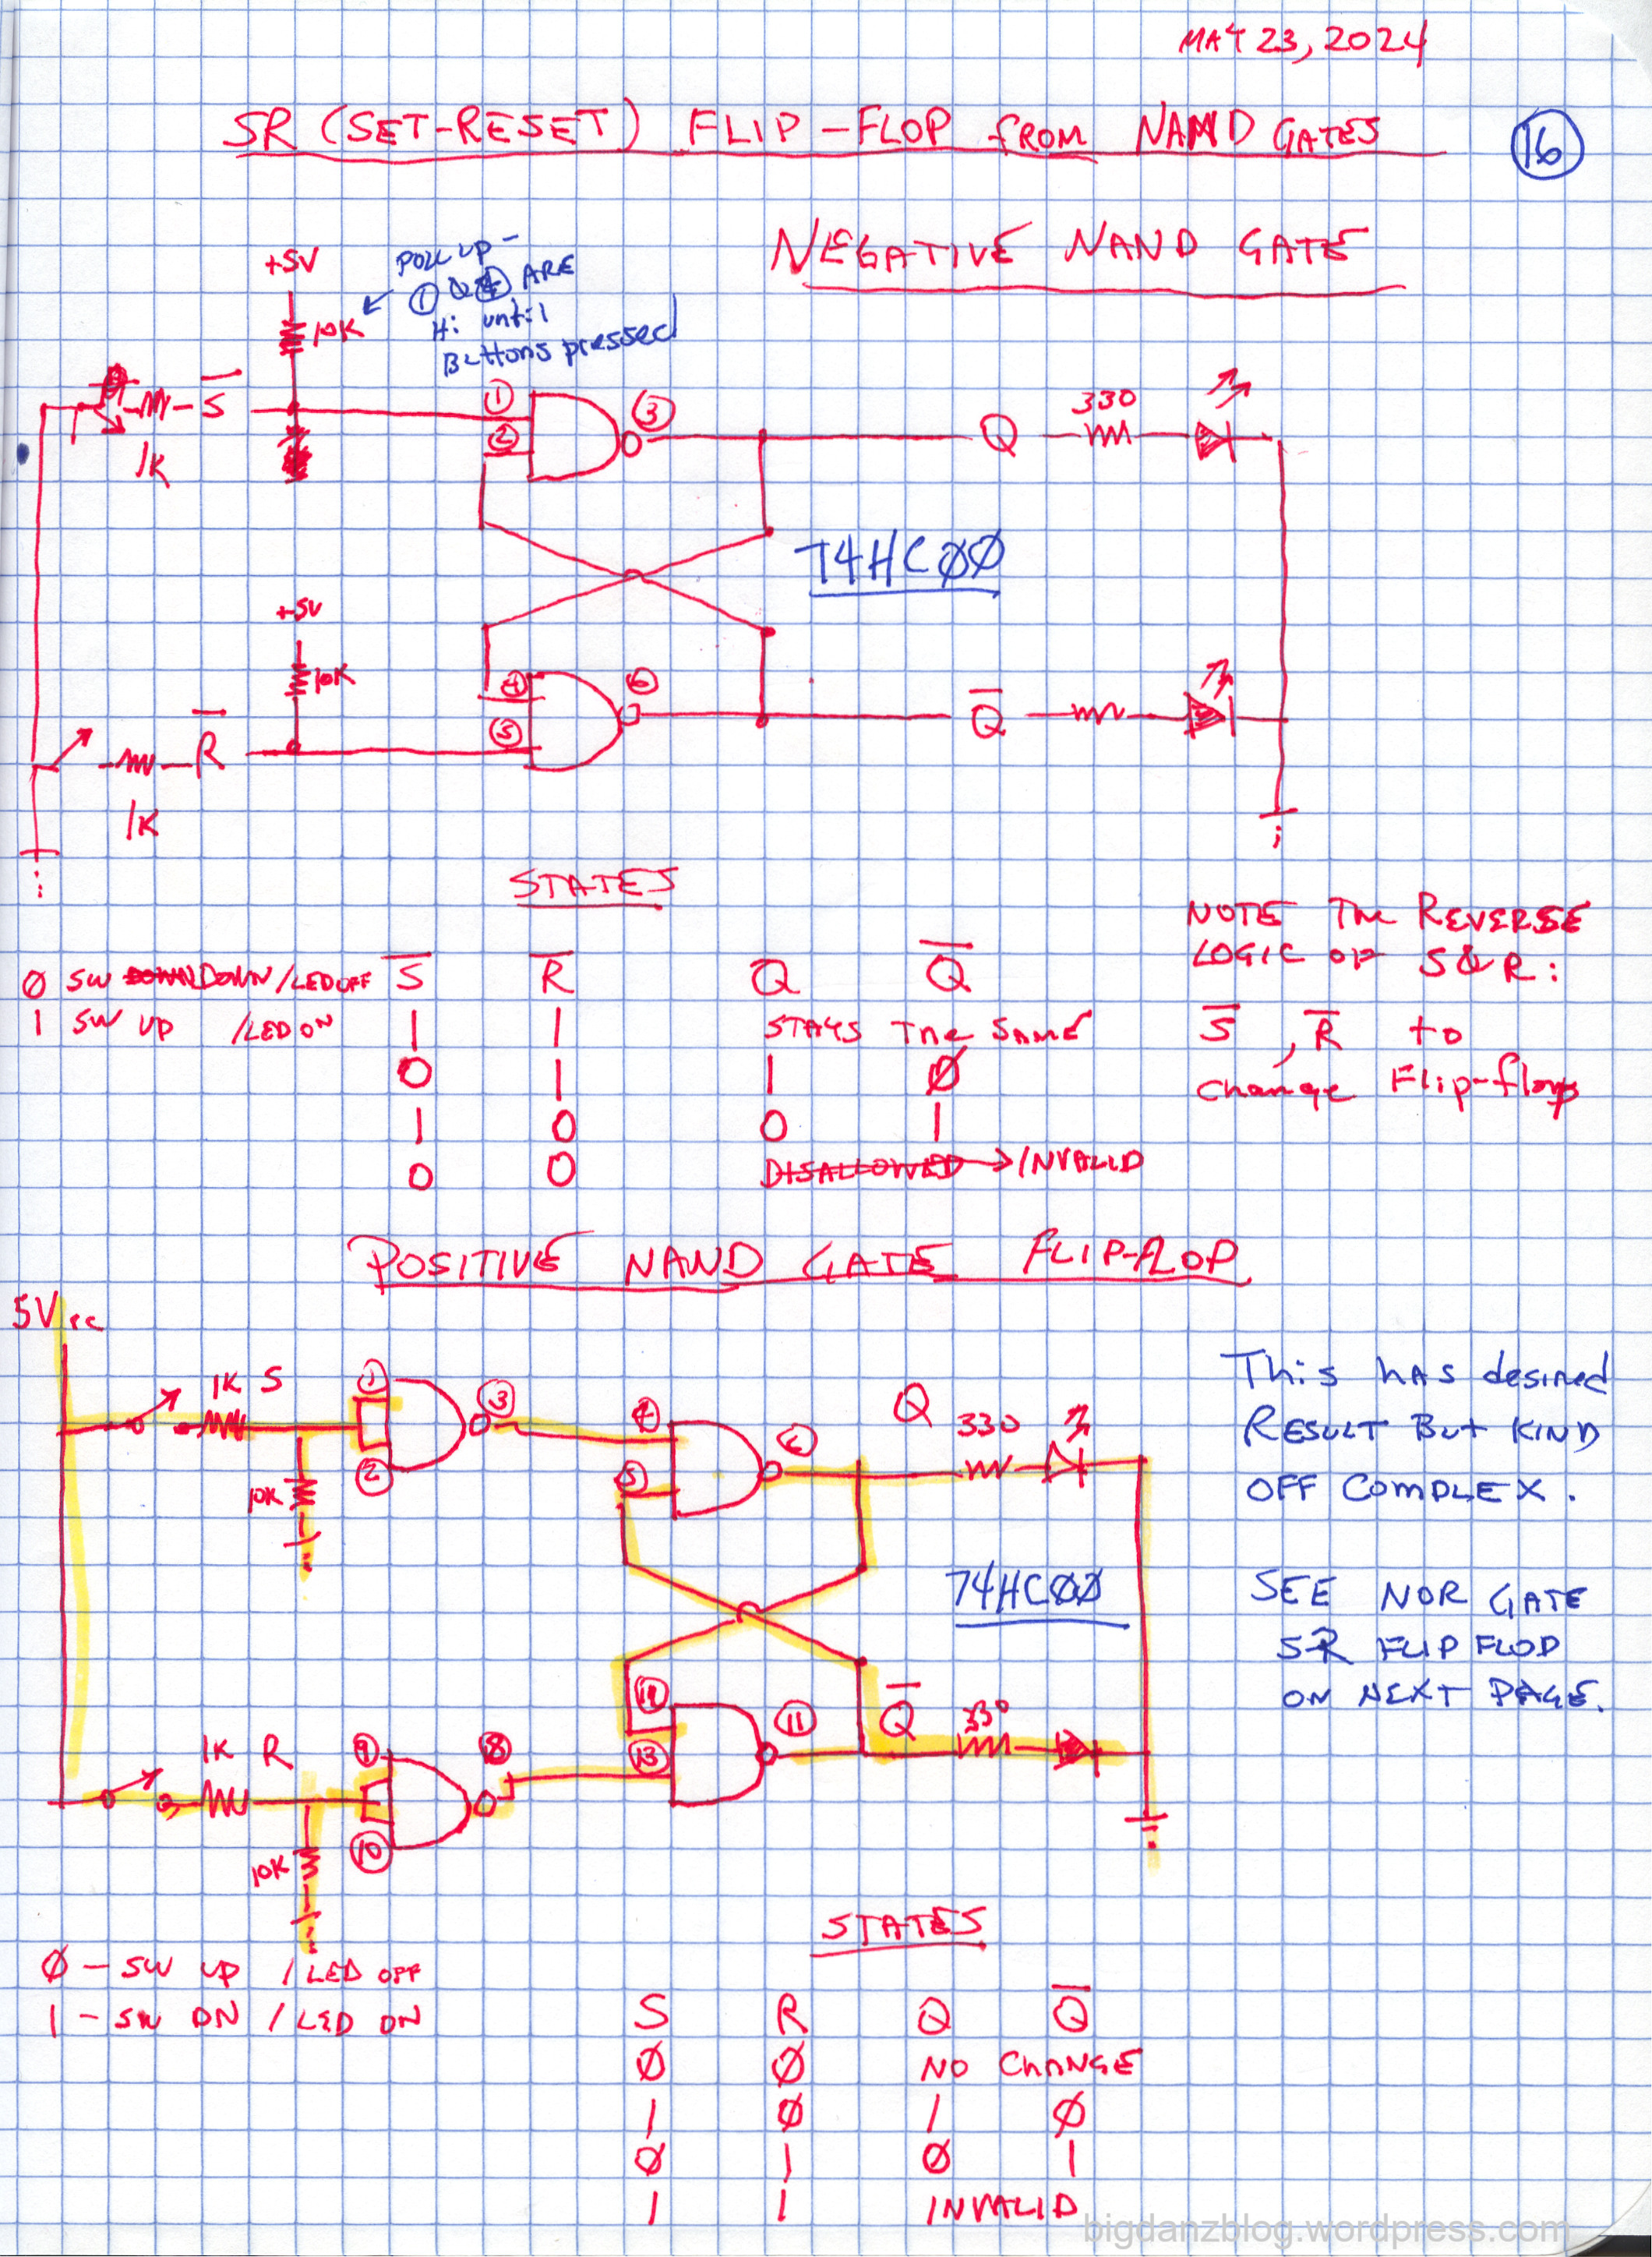 MAY 23, 2024
SR (SET-RESET) FLIP-FLOP from NAND GATES
16
NEGATIVE NAND GATE
+5V
PULL UP -
① & ④ ARE
Hi until
Buttons pressed
10K
S̅
1K
①
②
③
Q
330
74HCØØ
+5V
10K
R̅
1K
④
⑤
⑥
Q̅
STATES
NOTE The REVERSE
LOGIC OF S&R:
S̅, R̅ to
change Flip-flops
Ø SW DOWN DOWN / LED OFF S̅ R̅ Q Q̅
1 SW UP / LED ON 1 1 STAYS The SAME
0 1 1 Ø
1 0 0 1
0 0 DISALLOWED → INVALID
POSITIVE NAND GATE FLIP-FLOP
5Vcc
1K S
①
②
③
10K
④
⑤
⑥
Q
330
This has desired
RESULT But KIND
OFF COMPLEX.
74HCØØ
SEE NOR GATE
SR FLIP FLOP
ON NEXT PAGE.
1K R
⑨
⑩
⑧
10K
⑬
⑪
Q̅
330
STATES
Ø - SW UP / LED OFF
1 - SW DN / LED ON
S R Q Q̅
Ø Ø NO CHANGE
1 Ø 1 Ø
Ø 1 Ø 1
1 1 INVALID
bigdanzblog.wordpress.com